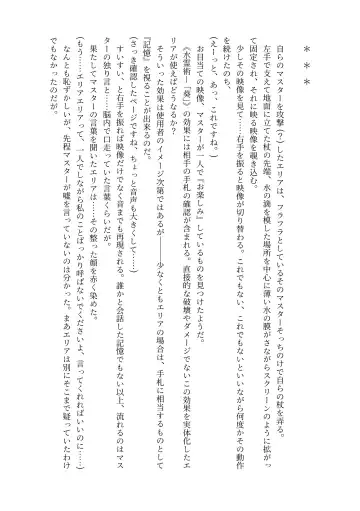 ＊　＊　＊
自らのマスターを攻撃（？）したエリアは、フラフラとしているそのマスターそっちのけで自らの杖を弄る。
左手で支えて地面に立てた杖の先端、水の滴を模した場所を中心に薄い水の膜がさながらスクリーンのように拡がっ
て固定され、それに映る映像を覗き込む。
少しその映像を見て……右手を振ると映像が切り替わる。これでもない、これでもないといいながら何度かその動作
を続けたのち、
（えーっと、あっ、これですね。）
お目当ての映像、マスターが一人で『お楽しみ』しているものを見つけたようだ。
《水霊術－「葵」》の効果には相手の手札の確認が含まれる。直接的な破壊やダメージでないこの効果を実体化したエ
リアが使えばどうなるか？
そういった効果は使用者のイメージ次第ではあるが――少なくともエリアの場合は、手札に相当するものとして
『記憶』を視ることが出来るのだ。
（さっき確認したページですね、ちょっと音声も大きくして……）
すいすい、と右手を振れば映像だけでなく音までも再現される。誰かと会話した記憶でもない以上、流れるのはマス
ターの独り言と……脳内で口走っていた言葉くらいだが。
果たしてマスターの言葉を聞いたエリアは……その整った顔を赤く染めた。
（もう……エリアエリアって、一人でしながら私のことばっかり呼ばないでくださいよぉ、言ってくれればいいのに……）
なんとも恥ずかしいが、先程マスターが嘘を言っていないのは分かった。まあエリアは別にそこまで疑っていたわけ
でもなかったのだが。